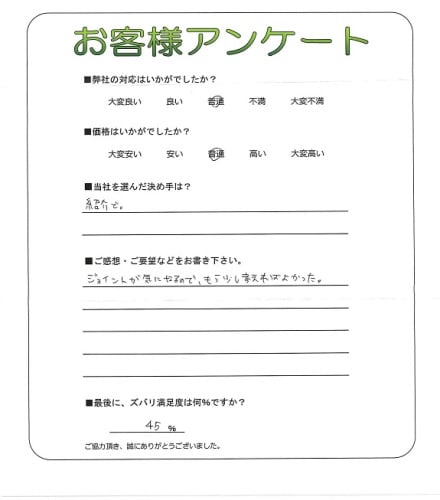 お客様アンケート
■弊社の対応はいかがでしたか？
大変良い 良い 普通 不満 大変不満
■価格はいかがでしたか？
大変安い 安い 普通 高い 大変高い
■当社を選んだ決め手は？
紹介で。
■ご感想・ご要望などをお書き下さい。
ジョイントが気になるので、もう少し考えればよかった。
■最後に、ズバリ満足度は何％ですか？
45 ％
ご協力頂き、誠にありがとうございました。